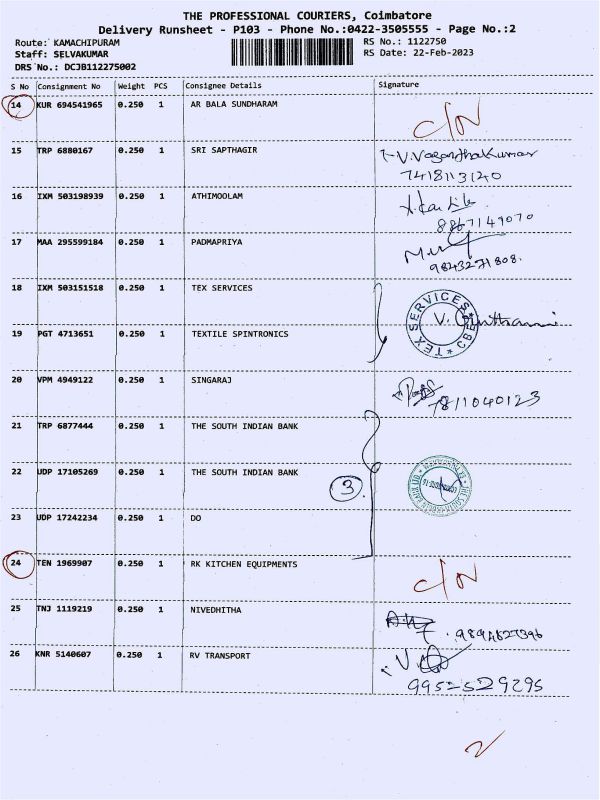 THE PROFESSIONAL COURIERS, Coimbatore
Delivery Runsheet - P103 - Phone No.:0422-3505555 - Page No.:2
Route: KAMACHIPURAM RS No.: 1122750
Staff: SELVAKUMAR RS Date: 22-Feb-2023
DRS No.: DCJB112275002
S No Consignment No Weight PCS Consignee Details Signature
14 KUR 694541965 0.250 1 AR BALA SUNDHARAM
C/N
15 TRP 6880167 0.250 1 SRI SAPTHAGIR
7418113120
16 IXM 503198939 0.250 1 ATHIMOOLAM
8867149070
17 MAA 295599184 0.250 1 PADMAPRIYA
9843271808.
18 IXM 503151518 0.250 1 TEX SERVICES
TEX SERVICES * CBE *
19 PGT 4713651 0.250 1 TEXTILE SPINTRONICS
20 VPM 4949122 0.250 1 SINGARAJ
7811040123
21 TRP 6877444 0.250 1 THE SOUTH INDIAN BANK
22 UDP 17105269 0.250 1 THE SOUTH INDIAN BANK
3
23 UDP 17242234 0.250 1 DO
24 TEN 1969907 0.250 1 RK KITCHEN EQUIPMENTS
C/N
25 TNJ 1119219 0.250 1 NIVEDHITHA
26 KNR 5140607 0.250 1 RV TRANSPORT
9952529295
2